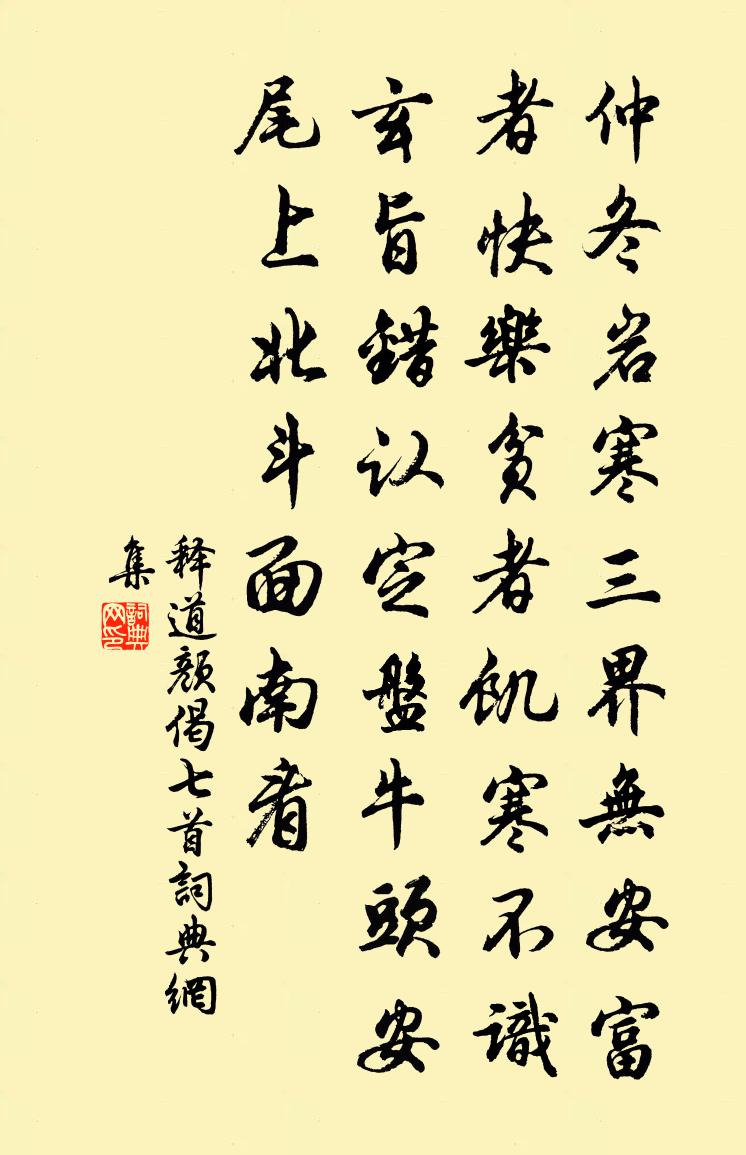 仲冬岩寒三界無安富
者快樂貧者飢寒不識
玄旨錯认定盤牛頭安
尾上北斗面南看
释道颜偈七首詞典網
集
詞典网印